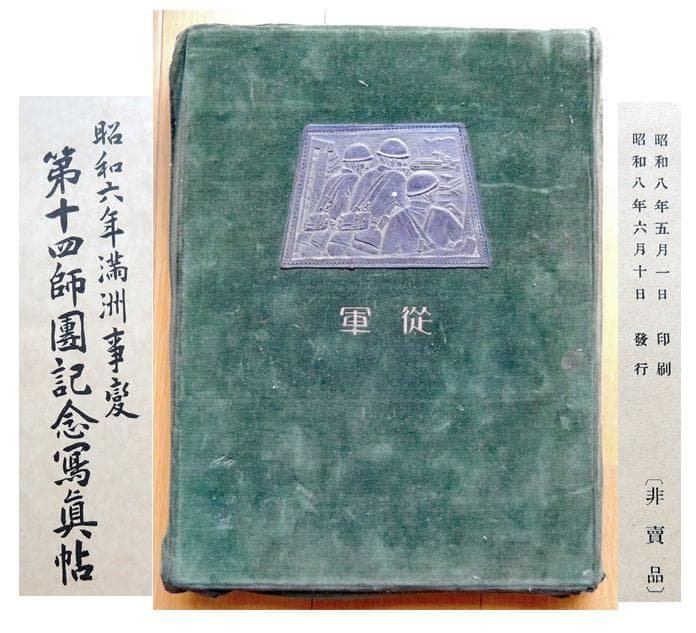 昭和六年滿洲事變
第十四師團記念寫眞帖
從軍
昭和八年五月一日印刷
昭和八年六月十日發行
〔非賣品〕